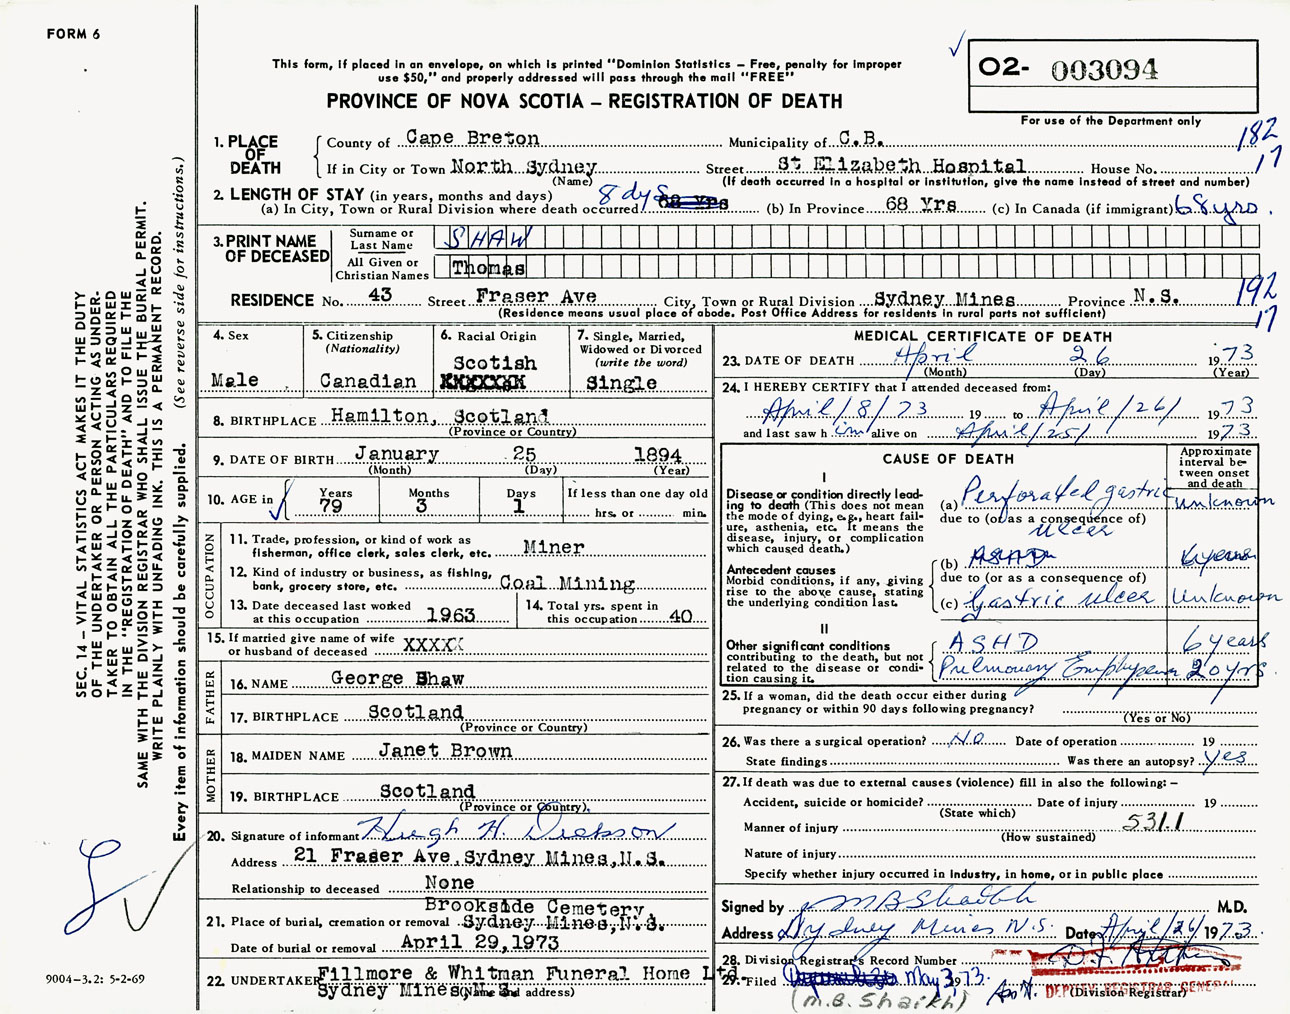 FORM 6
This form, if placed in an envelope, on which is printed "Dominion Statistics – Free, penalty for improper
use $50," and properly addressed will pass through the mail "FREE"
PROVINCE OF NOVA SCOTIA – REGISTRATION OF DEATH
02- 003094
For use of the Department only
182
17
1. PLACE OF DEATH
County of Cape Breton Municipality of C.B.
If in City or Town North Sydney Street St Elizabeth Hospital House No.
(Name) (If death occurred in a hospital or institution, give the name instead of street and number)
2. LENGTH OF STAY (in years, months and days)
(a) In City, Town or Rural Division where death occurred 8 dys 68 Yrs (b) In Province 68 Yrs (c) In Canada (if immigrant) 68 yrs.
3. PRINT NAME OF DECEASED
Surname or Last Name SHAW
All Given or Christian Names Thomas
RESIDENCE No. 43 Street Fraser Ave City, Town or Rural Division Sydney Mines Province N.S.
(Residence means usual place of abode. Post Office Address for residents in rural parts not sufficient)
192
17
4. Sex
Male
5. Citizenship
(Nationality)
Canadian
6. Racial Origin
Scotish
XXXXXXX
7. Single, Married,
Widowed or Divorced
(write the word)
Single
8. BIRTHPLACE Hamilton, Scotland
(Province or Country)
9. DATE OF BIRTH January 25 1894
(Month) (Day) (Year)
10. AGE in
Years 79
Months 3
Days 1
If less than one day old
hrs. or min.
OCCUPATION
11. Trade, profession, or kind of work as
fisherman, office clerk, sales clerk, etc. Miner
12. Kind of industry or business, as fishing,
bank, grocery store, etc. Coal Mining
13. Date deceased last worked
at this occupation 1963
14. Total yrs. spent in
this occupation 40
15. If married give name of wife
or husband of deceased XXXXX
FATHER
16. NAME George Shaw
17. BIRTHPLACE Scotland
(Province or Country)
MOTHER
18. MAIDEN NAME Janet Brown
19. BIRTHPLACE Scotland
(Province or Country)
20. Signature of informant Hugh H. Dickson
Address 21 Fraser Ave, Sydney Mines, N.S.
Relationship to deceased None
21. Place of burial, cremation or removal Brookside Cemetery
Sydney Mines, N.S.
Date of burial or removal April 29, 1973
22. UNDERTAKER Fillmore & Whitman Funeral Home Ltd.
Sydney Mines, N.S.
(Name and address)
MEDICAL CERTIFICATE OF DEATH
23. DATE OF DEATH April 26 1973
(Month) (Day) (Year)
24. I HEREBY CERTIFY that I attended deceased from:
April/8/73 19 to April/26/ 1973
and last saw him alive on April/25/ 1973
CAUSE OF DEATH
Approximate
interval be-
tween onset
and death
I
Disease or condition directly lead-
ing to death (This does not mean
the mode of dying, e.g., heart fail-
ure, asthenia, etc. It means the
disease, injury, or complication
which caused death.)
(a) Perforated gastric unknown
due to (or as a consequence of)
ulcer
Antecedent causes
Morbid conditions, if any, giving
rise to the above cause, stating
the underlying condition last.
(b) ASHD 6 years
due to (or as a consequence of)
(c) Gastric ulcer Unknown
II
Other significant conditions
contributing to the death, but not
related to the disease or condi-
tion causing it.
ASHD 6 years
Pulmonary Emphysema 20 yrs.
25. If a woman, did the death occur either during
pregnancy or within 90 days following pregnancy?
(Yes or No)
26. Was there a surgical operation? No Date of operation 19
State findings Was there an autopsy? yes
27. If death was due to external causes (violence) fill in also the following: –
Accident, suicide or homicide? Date of injury 19
(State which)
Manner of injury 531.1
(How sustained)
Nature of injury
Specify whether injury occurred in industry, in home, or in public place
Signed by M B Shaikh M.D.
Address Sydney Mines N.S. Date April/26/1973.
28. Division Registrar's Record Number
29. Filed May 3, 1973.
(M.B. Shaikh)
DEPUTY REGISTRAR GENERAL
(Division Registrar)
SEC. 14 – VITAL STATISTICS ACT MAKES IT THE DUTY
OF THE UNDERTAKER OR PERSON ACTING AS UNDER-
TAKER TO OBTAIN ALL THE PARTICULARS REQUIRED
IN THE "REGISTRATION OF DEATH" AND TO FILE THE
SAME WITH THE DIVISION REGISTRAR WHO SHALL ISSUE THE BURIAL PERMIT.
WRITE PLAINLY WITH UNFADING INK. THIS IS A PERMANENT RECORD.
Every item of information should be carefully supplied. (See reverse side for instructions.)
9004–3.2: 5-2-69